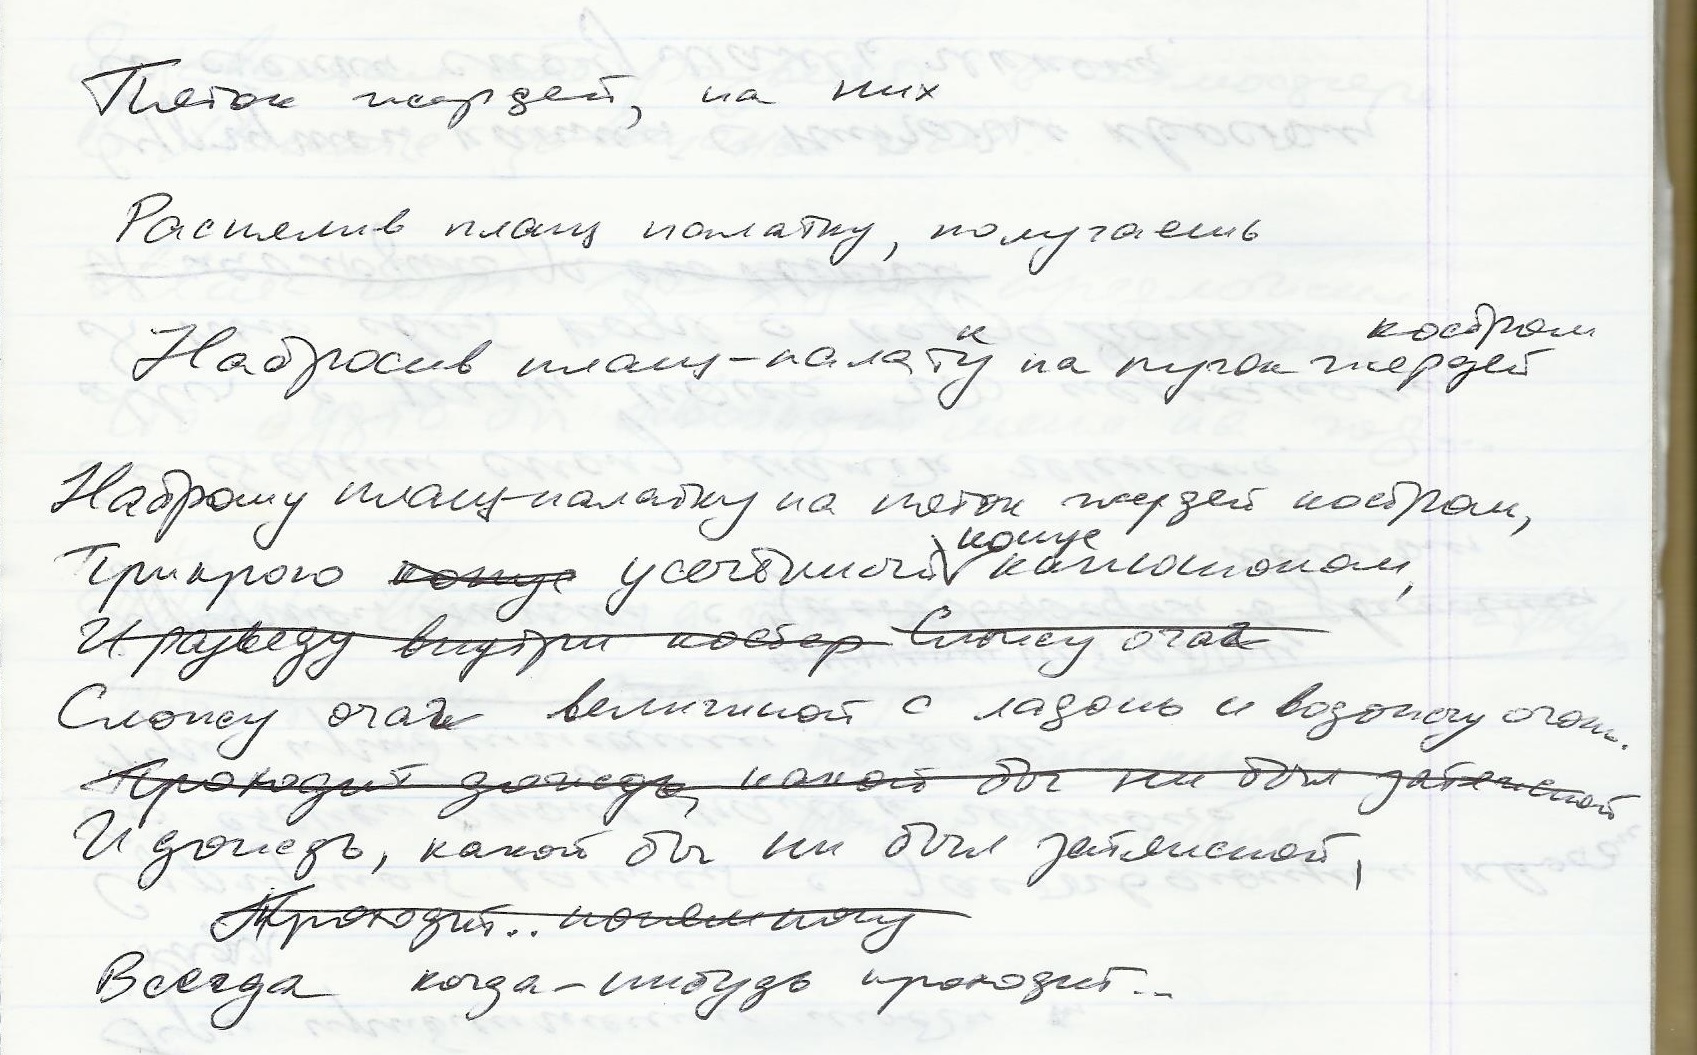 Пяток жердей, на них
Распялив плащ палатку, получаешь
Набросив плащ-палатку на пучок жердей костром
Наброшу плащ-палатку на пяток жердей костром,
Прикрою конус усечённый конус капюшоном,
И разведу внутри костёр Сложу очаг
Сложу очаг величиной с ладонь и возожгу огонь.
Проходит дождь, какой бы ни был затяжной
И дождь, какой бы ни был затяжной,
Проходит.. понемногу
Всегда когда-нибудь проходит..